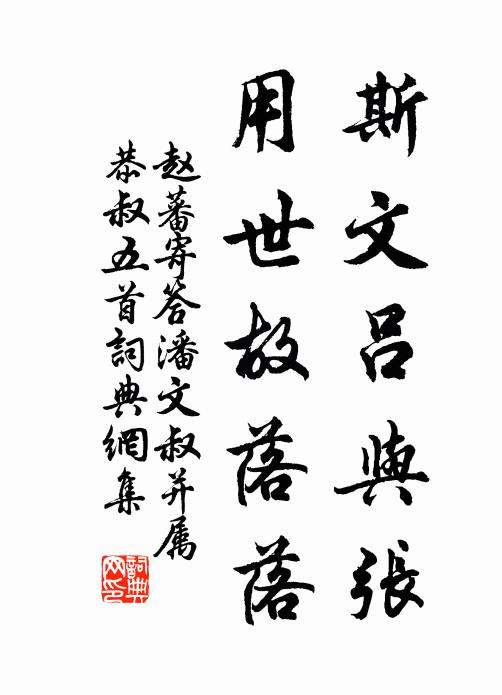 斯文吕與張
用世故落落
赵蕃寄答潘文叔并属
恭叔五首詞典網集
詞典網印